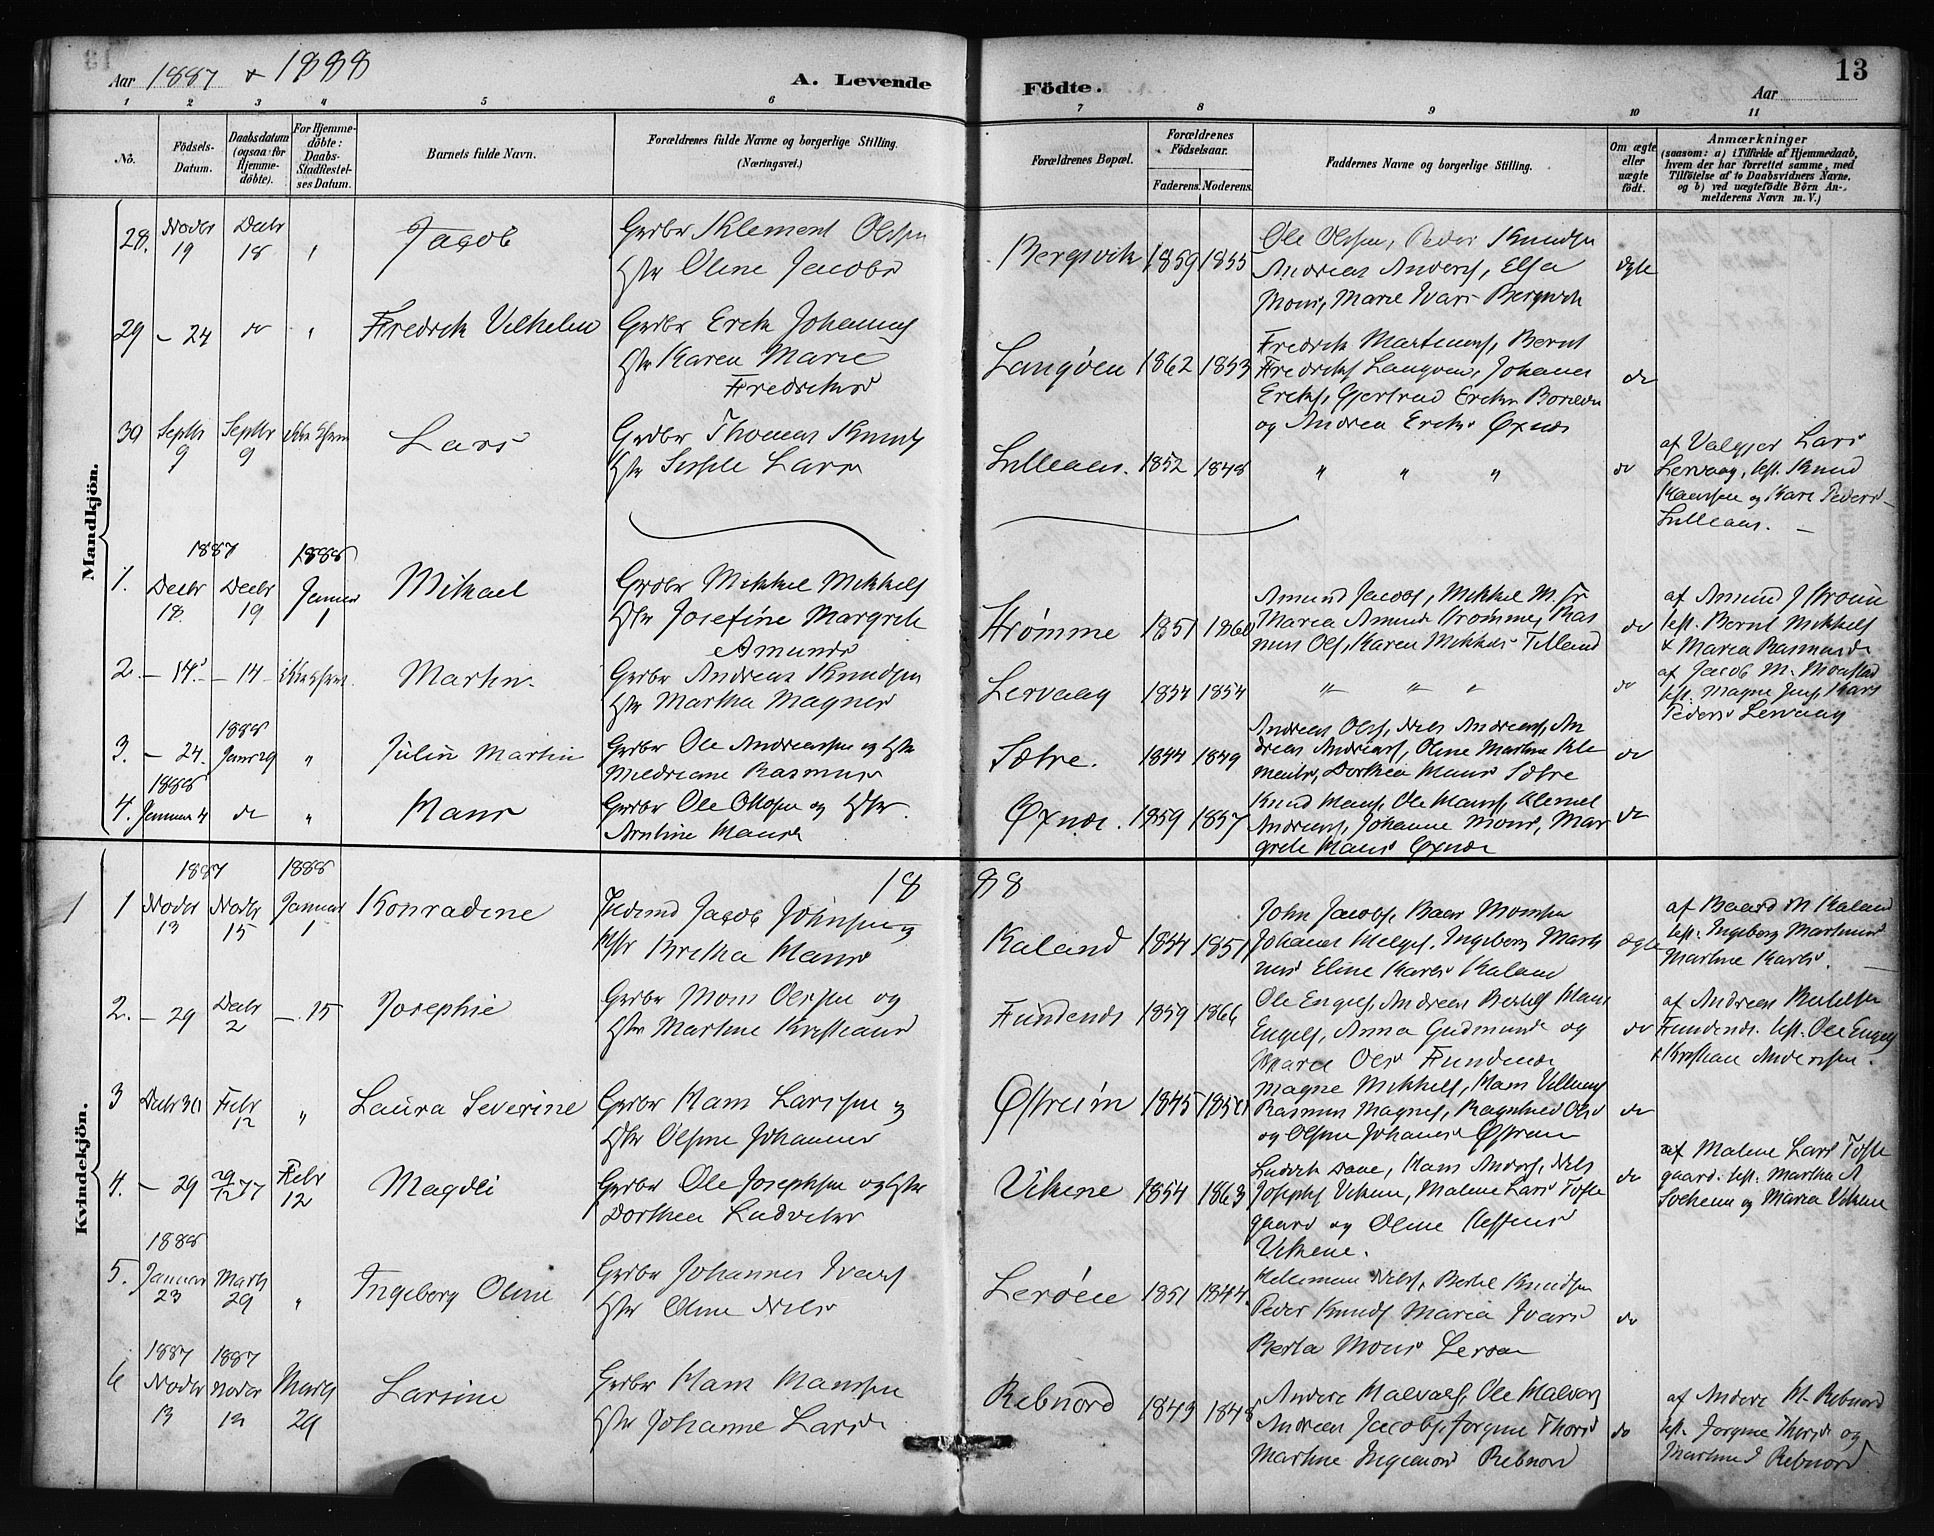 13
Aar 1887 & 1888 A. Levende Födte. 13
Aar
1 2 3 4 5 6 7 8 9 10 11
No.
Födsels-
Datum.
Daabsdatum
(ogsaa for
Hjemme-
döbte).
For Hjemme-
döbte:
Daabs-
Stadfæstel-
ses Datum.
Barnets fulde Navn.
Forældrenes fulde Navne og borgerlige Stilling.
(Næringsvei.)
Forældrenes Bopæl.
Forældrenes
Födselsaar.
Faderens. Moderens.
Faddernes Navne og borgerlige Stilling.
Om ægte
eller
uægte
födt.
Anmærkninger
(saasom: a) i Tilfælde af Hjemmedaab,
hvem der har forrettet samme, med
Tilföielse af to Daabsvidners Navne,
og b) ved uægtefödte Börn An-
melderens Navn m. V.)
Mandkjön.
28. Novbr 19 Decbr 18 " Jacob
Grdbr Klement Olssen
Hstr Oline Jacobs
Bergsvik 1859 1855
Ole Olssen, Peder Knudsen
Andreas Anders, Elsa
Mons, Marie Ivars Bergsvik
ægte
29 - 24 do " Fredrik Vilhelm
Grdbr Erik Johannes
Hstr Karen Marie
Fredriks
Langøen 1862 1853
Fredrik Martinus, Bernt
Fredriks Langøen, Johannes
Eriks, Gjertrud Eriks
og Andrea Eriks Øxnæs
do
30 Septbr 9 Septbr 9 Lars
Grdbr Thomas Knuds
Hstr Sissele Lars
Lilleaas. 1852 1848
" " "
do
af Lars
Lervaag, test. Knud
Hanssen og Kari Peders
Lilleaas. -
1887 1888
1. Decbr 18. Decbr 19 Januar 1 Mikael
Grdbr Mikkel Mikkels
Hstr Josefine Margrete
Amunds
Strømme 1851 1860
Amund Jacobs, Mikkel M. Str
Maria Amunds Strømme, Ras
mus Ols, Karen Mikkels
do
af Amund J Strøm
test. Bernt Mikkels
& Maria Rasmusd
2 - 14. - 14 Martin.
Grdbr Andreas Knudsen
Hstr Martha Magnes
Lervaag 1854 1854
" " "
do
af Jacob M.
test. Magne Jens, Kari
Peders Lervaag
1888
3. - 24. Januar 29 " Julin Martin
Grdbr Ole Andreassen og Hstr
Rasmus
Sætre. 1844 1849
Andreas Ols, Nels Andreas, An
dreas Andreas, Oline Martine Kle
ments, Dorthea Hans Sætre
do
1888
4. Januar 4 do " Hans
Grdbr Ole Olssen og Hstr.
Hansd
Øxnæs. 1859 1857
Knud Hans, Ole Hans, Klemet
Andreas, Johanne Mons, Mar
grete Hans Øxnæs
do
18 88
Kvindekjön.
1887 1888
1 1 Novbr 13 Novbr 15 Januar 1 Konradine
Jacob Johnsen og
Hstr Britha Hans
Kaland 1844 1851
John Jacobs, Baar Monsen
Johannes Helges, Ingeborg Marti
nus Eline Karls Kaland
ægte
af Baard M Kaland
test. Ingeborg Martinus
Martine Karls.
2. - 29 Decbr 2 - 15 Josephie
Grdbr Mons Olssen og
Hstr Martine Kristians
Fundenæs 1859 1866
Ole Engels, Andreas Bertels Hans
Engels, Anna Gudmunds og
Marie Ols Fundenæs
do
af Andreas Bertelsen
Fundenæs. test. Ole Engels
& Kristian Anderssen.
3 Decbr 30 Febr 12 " Laura Severine
Grdbr Hans Larssen og
Hstr Olsine Johannes
Østreim 1845
Magne Mikkels, Hans Villums
Rasmus Magnes, Ragnhild Ols
og Olsine Johannes Østreim
do
4. - 29 29/12 77 Febr 12 Magdli
Grdbr Ole Josephsen og Hstr
Dorthea Ludviks
Vikene 1854 1863
Ludvik Dane, Hans Anders, Nels
Josephs Vikene, Malene Lars Tofte
gaard og Oline Steffens
Vikene.
do
af Malene Lars Tofte
gaard. test. Martha A
og Maria Vikene
1888
5. Januar 23 Marts 29 " Ingeborg Oline
Grdbr Johannes Ivars
Hstr Oline Nels
Lerøen 1851 1844.
Nels, Bertel Knudsen
Peder Knuds Maria Ivars
Berta Mons Lerøen
do
1887 1887
6 Novbr 13 Novbr 13 Marts 29 Larsine
Grdbr Hans Hanssen
Hstr Johanne Lars
Rebnord 1843 1848
Anders Halvars, Ole Halvors
Andreas Jacobs, Jorgine Thors
Martine Ingemors Rebnord
do
af Anders H. Rebnord
test. Jorgine Thors og
Martine J Rebnord